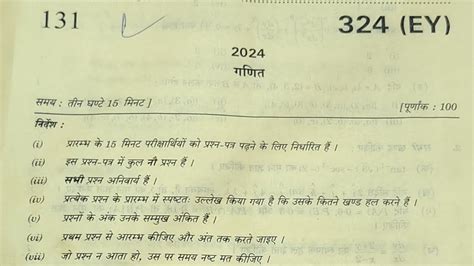 131
324 (EY)
2024
गणित
समय : तीन घण्टे 15 मिनट ]
[पूर्णांक : 100
निर्देश :
(i) प्रारम्भ के 15 मिनट परीक्षार्थियों को प्रश्न-पत्र पढ़ने के लिए निर्धारित हैं ।
(ii) इस प्रश्न-पत्र में कुल नौ प्रश्न हैं ।
(iii) सभी प्रश्न अनिवार्य हैं ।
(iv) प्रत्येक प्रश्न के प्रारम्भ में स्पष्टतः उल्लेख किया गया है कि उसके कितने खण्ड हल करने हैं ।
(v) प्रश्नों के अंक उनके सम्मुख अंकित हैं ।
(vi) प्रथम प्रश्न से आरम्भ कीजिए और अंत तक करते जाइए ।
(vii) जो प्रश्न न आता हो, उस पर समय नष्ट मत कीजिए ।